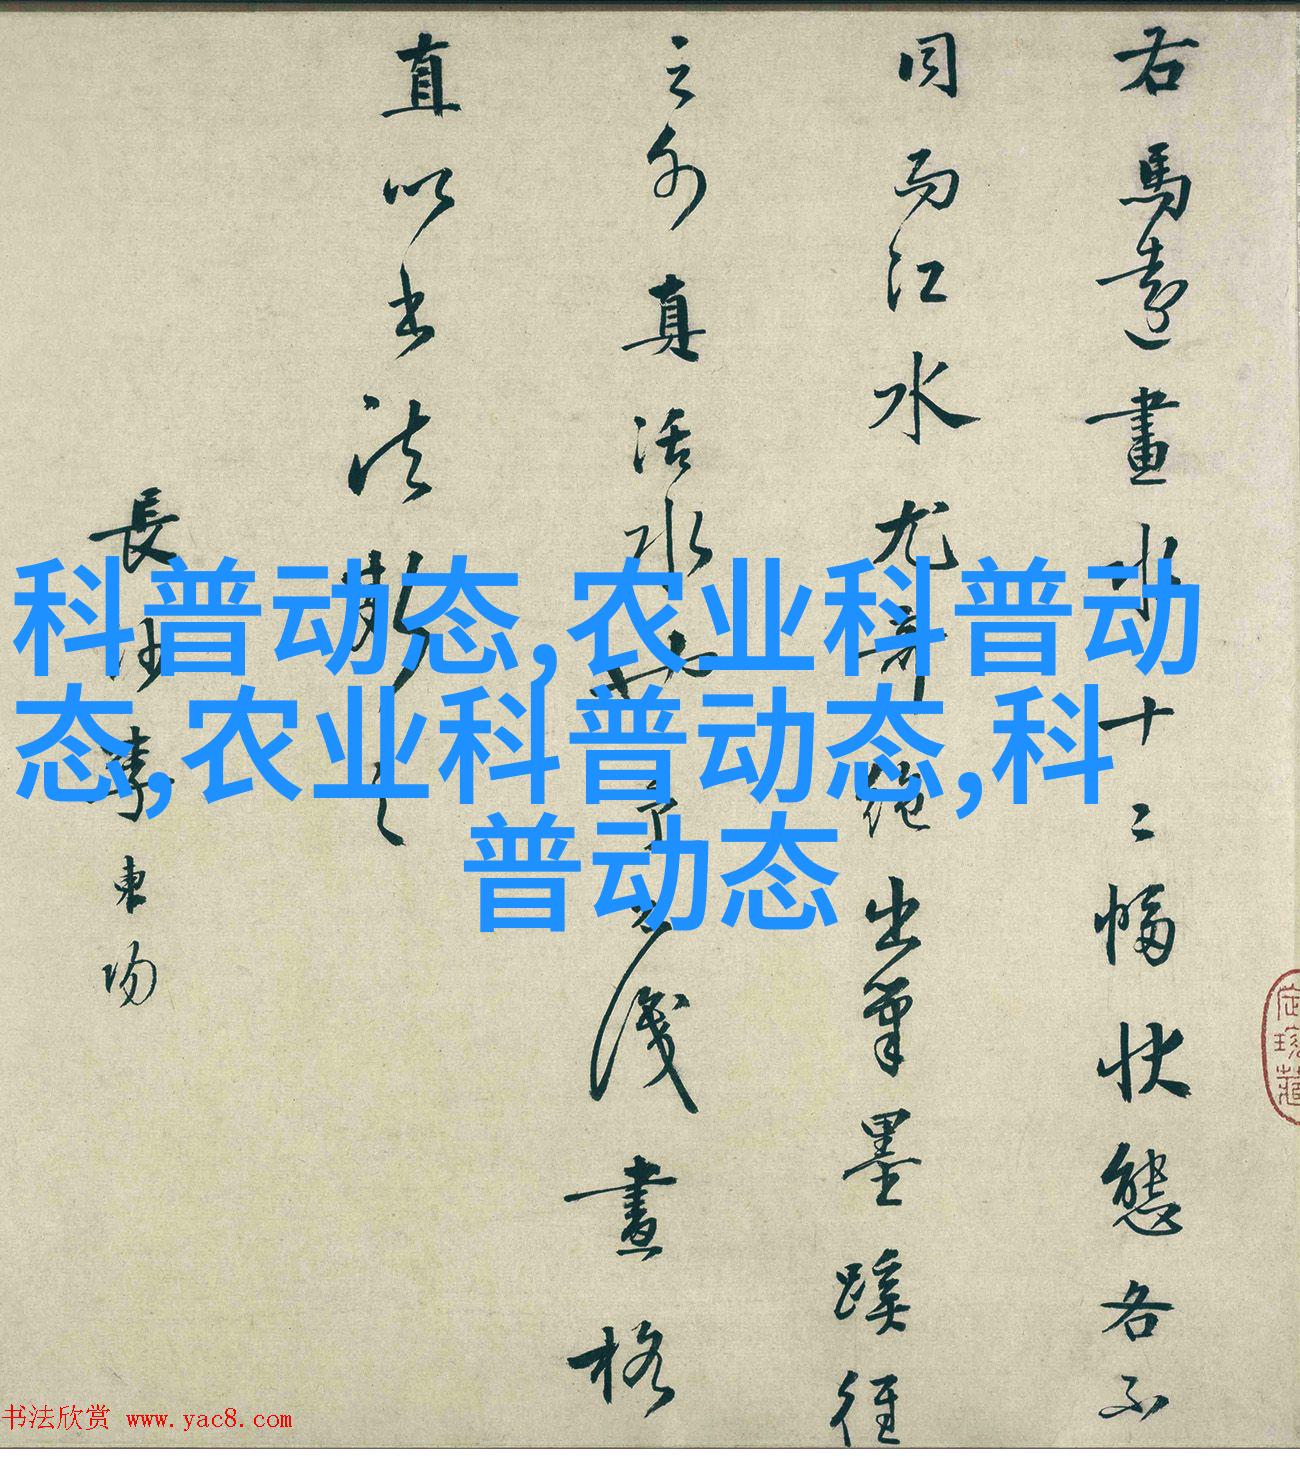 右馬遠畫水十二幅状態各不
同而江水尤奇絶出筆墨蹊徑
之外真活水也予不識畫格
直以書法斷之
長沙李東陽
科普动态,农业科普动
态,农业科普动态,科
普动态
书法欣赏 www.yac8.com